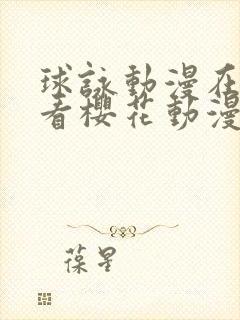 球詠動漫在
看櫻花動漫
葆星